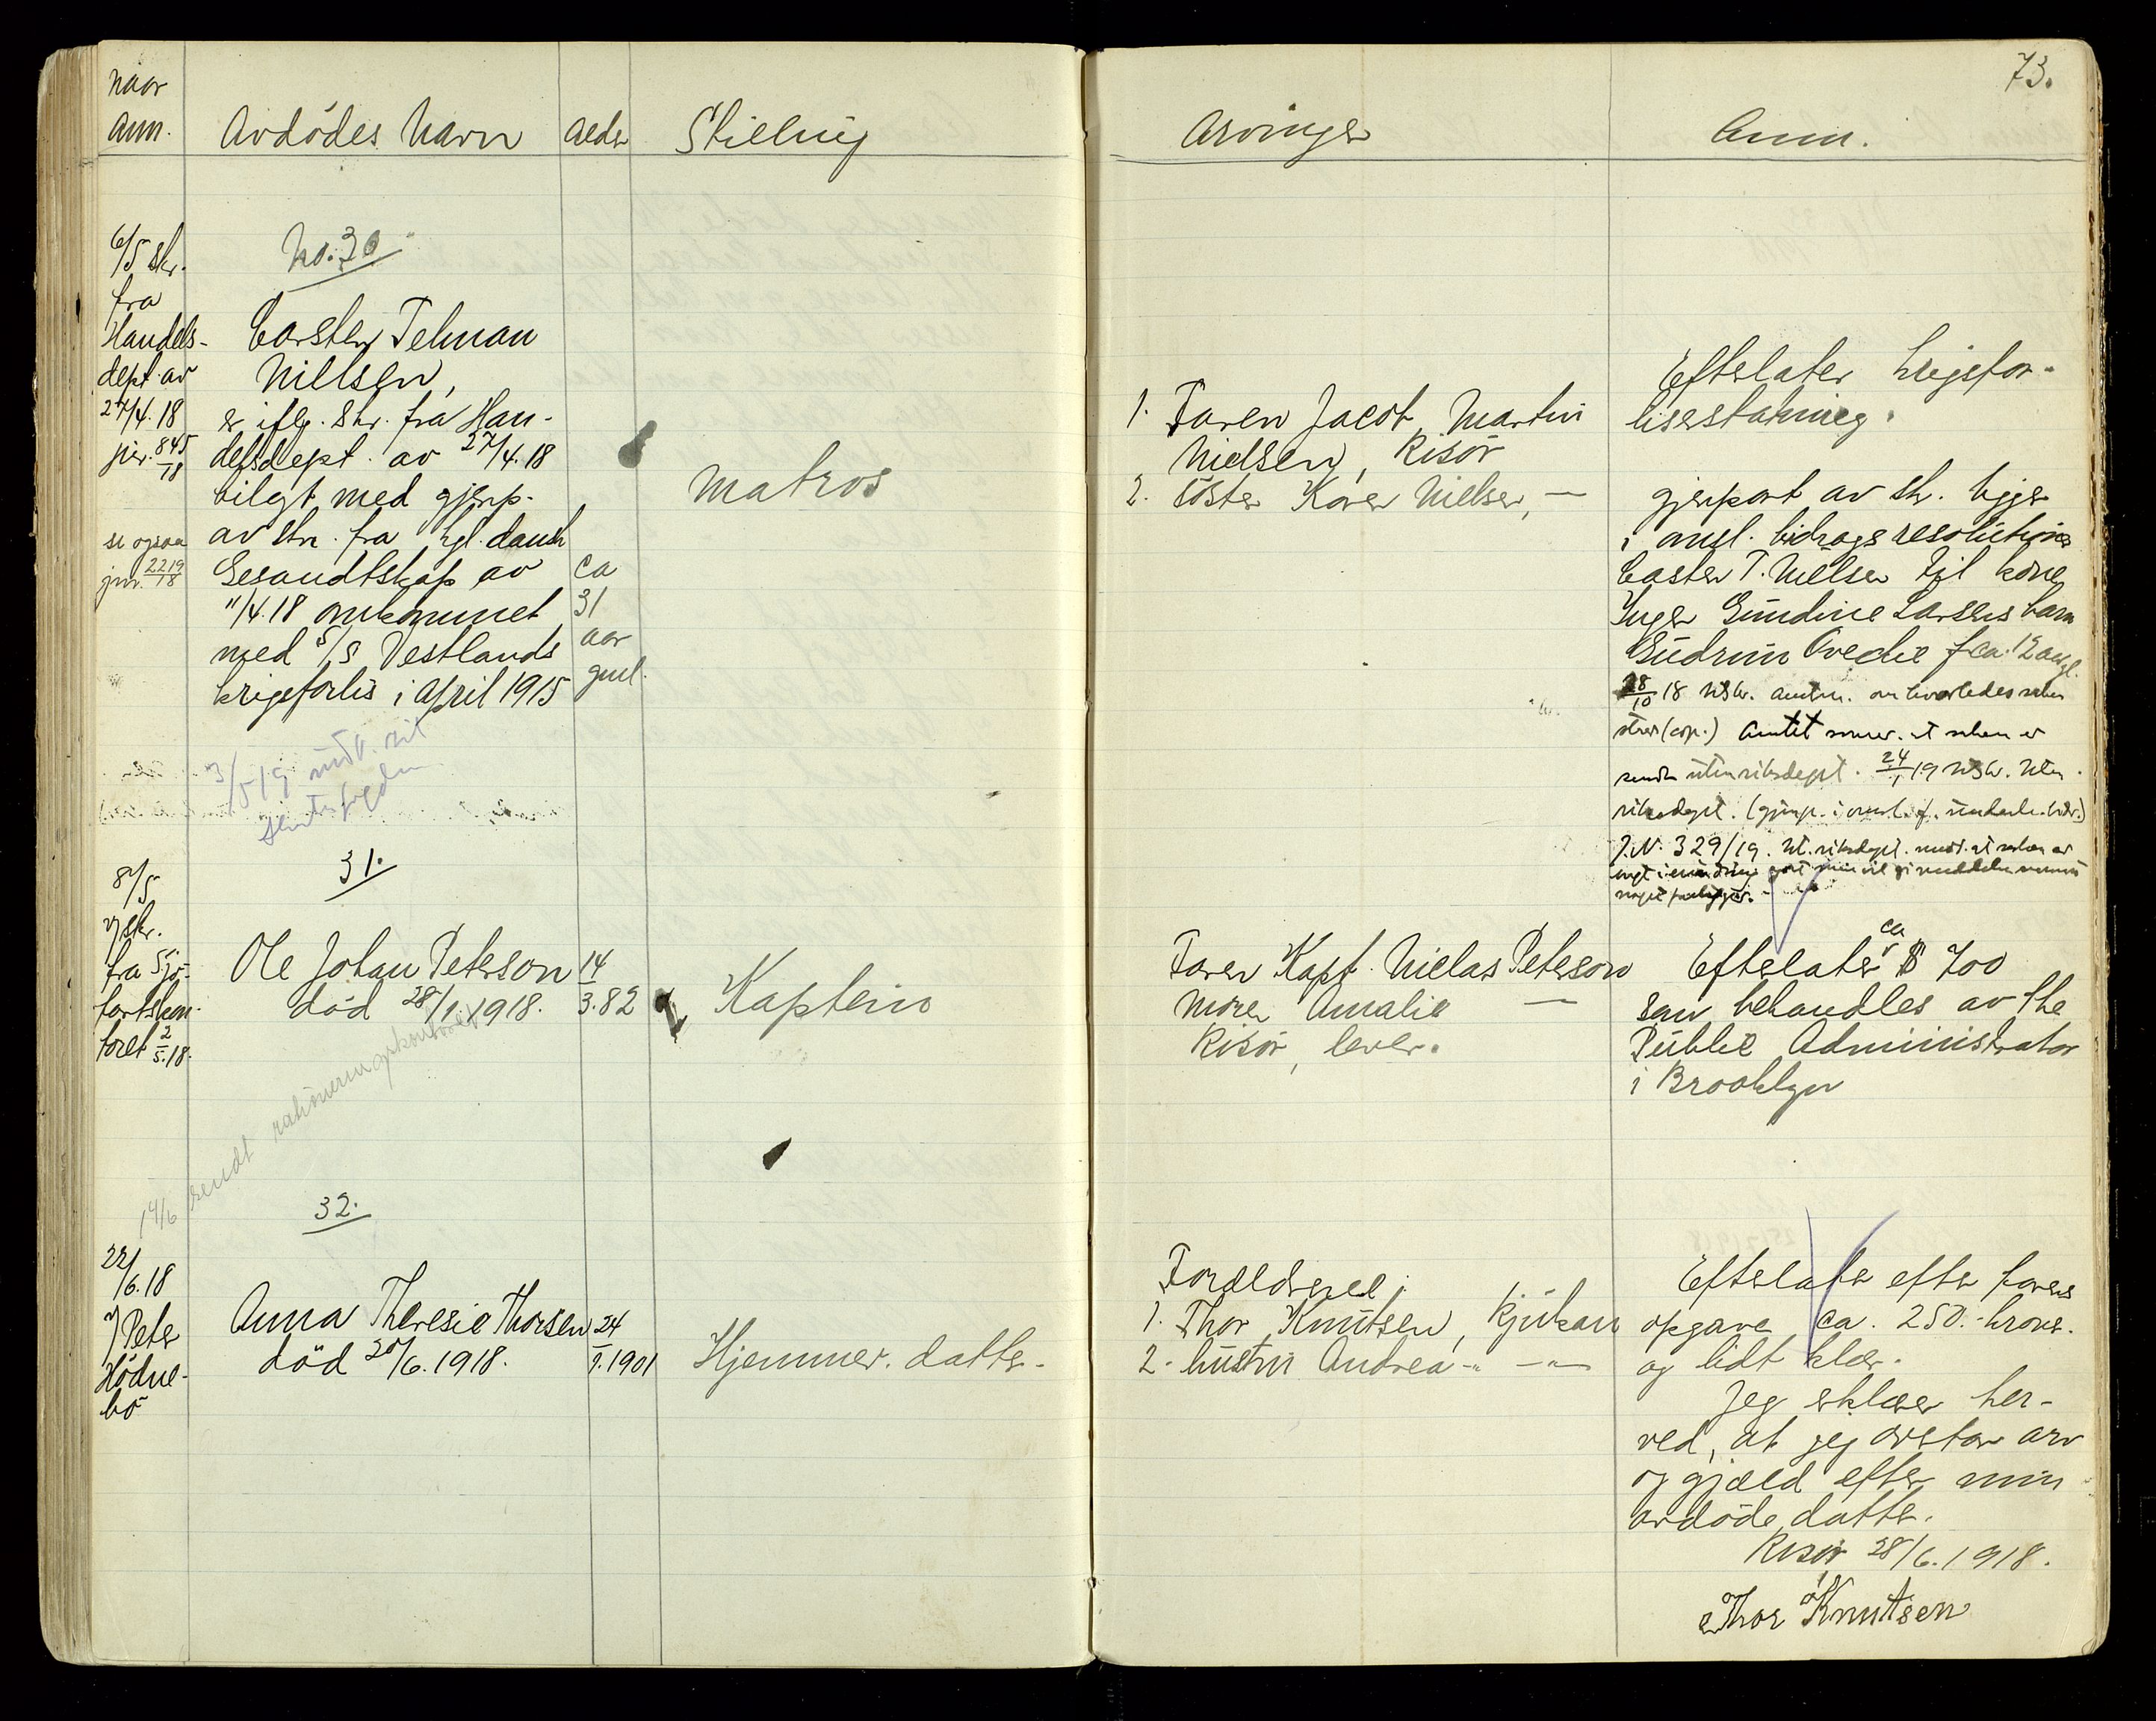 73.
Naar
Anm.
Avdödes Navn
Alder
Stilling
Arvinger
Anm.
6/5 skr.
fra
Handels-
dept. av
27/4.18
jnr. 845/18
se ogsaa
jnr. 2219/18
No. 30
Carsten Telman
Nielsen,
er iflg. skr. fra Han-
delsdept. av 27/4.18
bilagt med gjenp.
av skr. fra kgl. dansk
Gesandtskap av
11/4.18 omkommet
med S/S Vestlands
krigsforlis i april 1915
ca
31
aar
gml.
Matros
1. Faren Jacob Martin
Nielsen, Risör
2. söster Karen Nielsen, —
Efterlater krigsfor-
liserstatning.
gjenpart av sk. ligger
i omsl. bidragsresolutioner
Casten T. Nielsen til kone
Inger Gundine Larsens barn
Gudrun Ovedie f. ca. 12 aug.
28/10 18 Amtm. om hvorledes saken
staar (cop.) Amtet at saken er
sendt utenriksdept. 24/1 19 Uten
riksdept. (gjenp. i omsl. f.
J.N. 329/19. Ut. riksdept. at saken er
3/5 19
31.
8/5
skr.
fra Sjö-
fartskon-
toret 2/5.18.
Ole Johan Peterson
död 28/1.1918.
14/3.82
Kaptein
Faren Kapt. Nielas Peterson
Moren Amalie —
Risör, lever.
Efterlater ca $ 700
som behandles av the
Public Administrator
i Brooklyn
14/6 sendt rationeringskontoret
32.
22/6.18
v/ Peter
Hödne-
bö
Anna Theresie Thorsen
död 20/6.1918.
24/9.1901
Hjemmev. datter.
Forældrene:
1. Thor Knutsen, Rjukan
2. hustru Andrea -"- —"—
Efterlater efter farens
opgave ca. 250.- kroner.
og lidt klær.
Jeg erklærer her-
ved, at jeg overtar arv
og gjæld efter min
avdöde datter.
Risör 28/6.1918.
Thor Knutsen